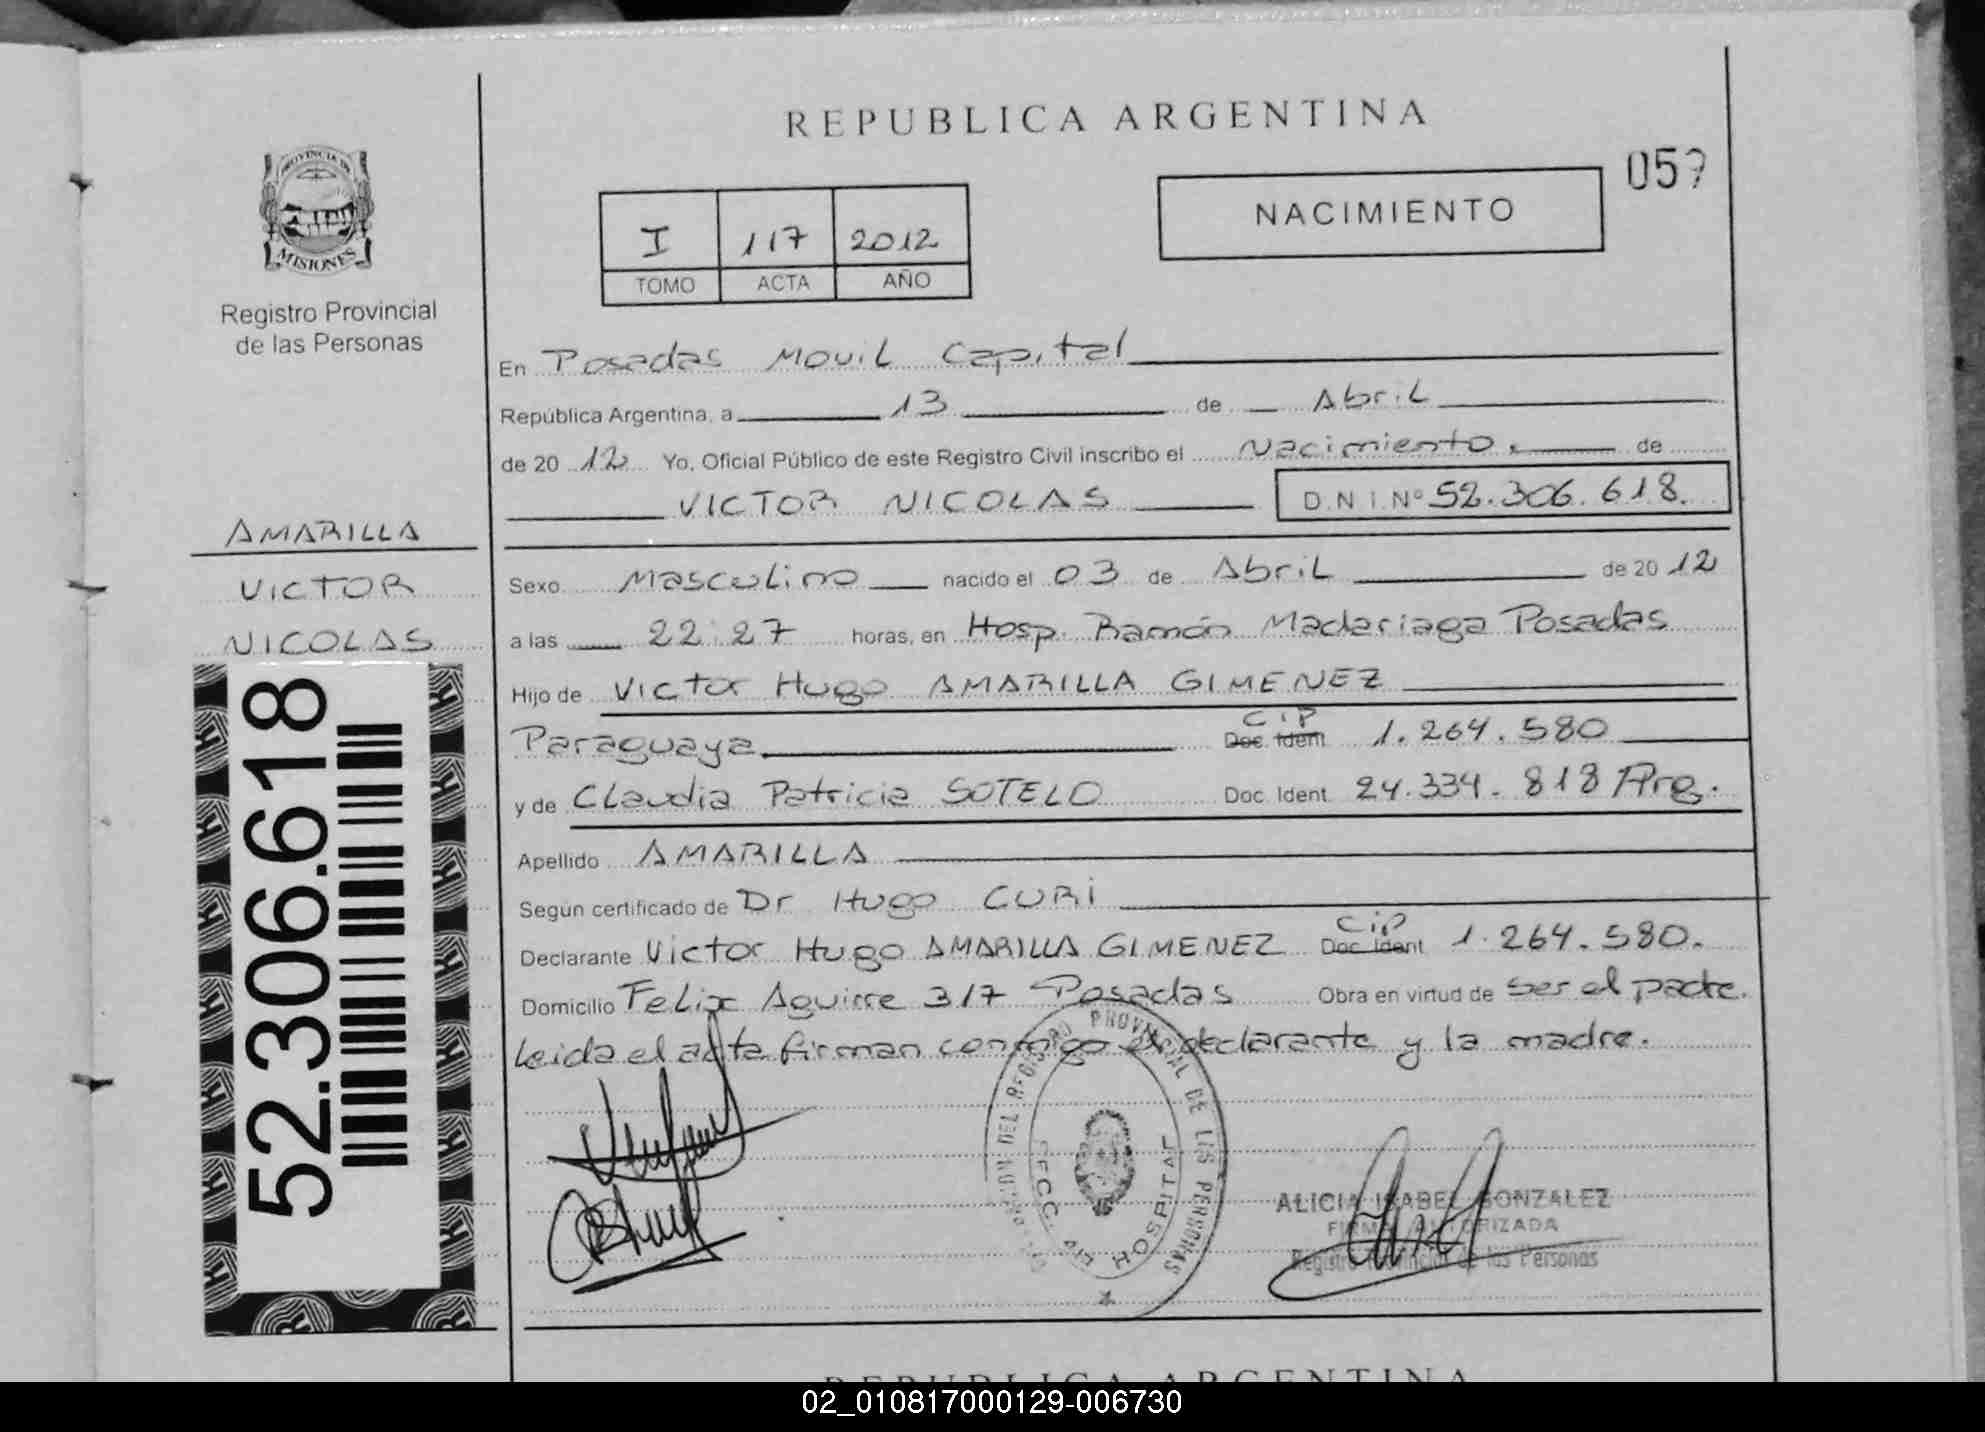 REPUBLICA ARGENTINA
059
PROVINCIA DE
MISIONES
Registro Provincial
de las Personas
I 117 2012
TOMO ACTA AÑO
NACIMIENTO
En Posadas Movil Capital
República Argentina, a 13 de Abril
de 20 12 Yo, Oficial Público de este Registro Civil inscribo el Nacimiento. de
VICTOR NICOLAS D.N.I.Nº 52.306.618.
AMARILLA
VICTOR
NICOLAS
52.306.618
Sexo Masculino nacido el 03 de Abril de 20 12
a las 22:27 horas, en Hosp. Ramón Madariaga Posadas
Hijo de Victor Hugo AMARILLA GIMENEZ
Paraguaya CiP Doc. Ident 1.264.580
y de Claudia Patricia SOTELO Doc. Ident 24.334.818 Arg.
Apellido AMARILLA
Según certificado de Dr Hugo CURi
Declarante Victor Hugo AMARILLA GIMENEZ CiP Doc. Ident 1.264.580.
Domicilio Felix Aguirre 317 Posadas Obra en virtud de ser el padre.
Leida el acta firman conmigo el declarante y la madre.
DEL REGISTRO PROVINCIAL DE LAS PERSONAS
HOSPITAL
ALICIA ISABEL GONZALEZ
FIRMA AUTORIZADA
Registro Provincial de las Personas
REPUBLICA ARGENTINA
02_010817000129-006730